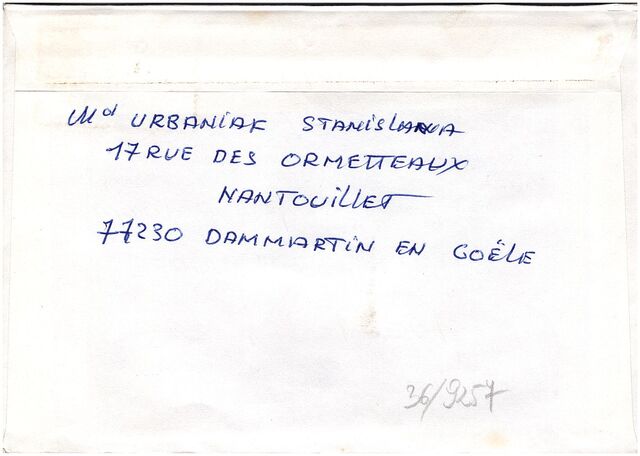 Md URBANIAK STANISLAWA
17 RUE DES ORMETTEAUX
NANTOUILLET
77230 DAMMARTIN EN GOËLE
36/9257